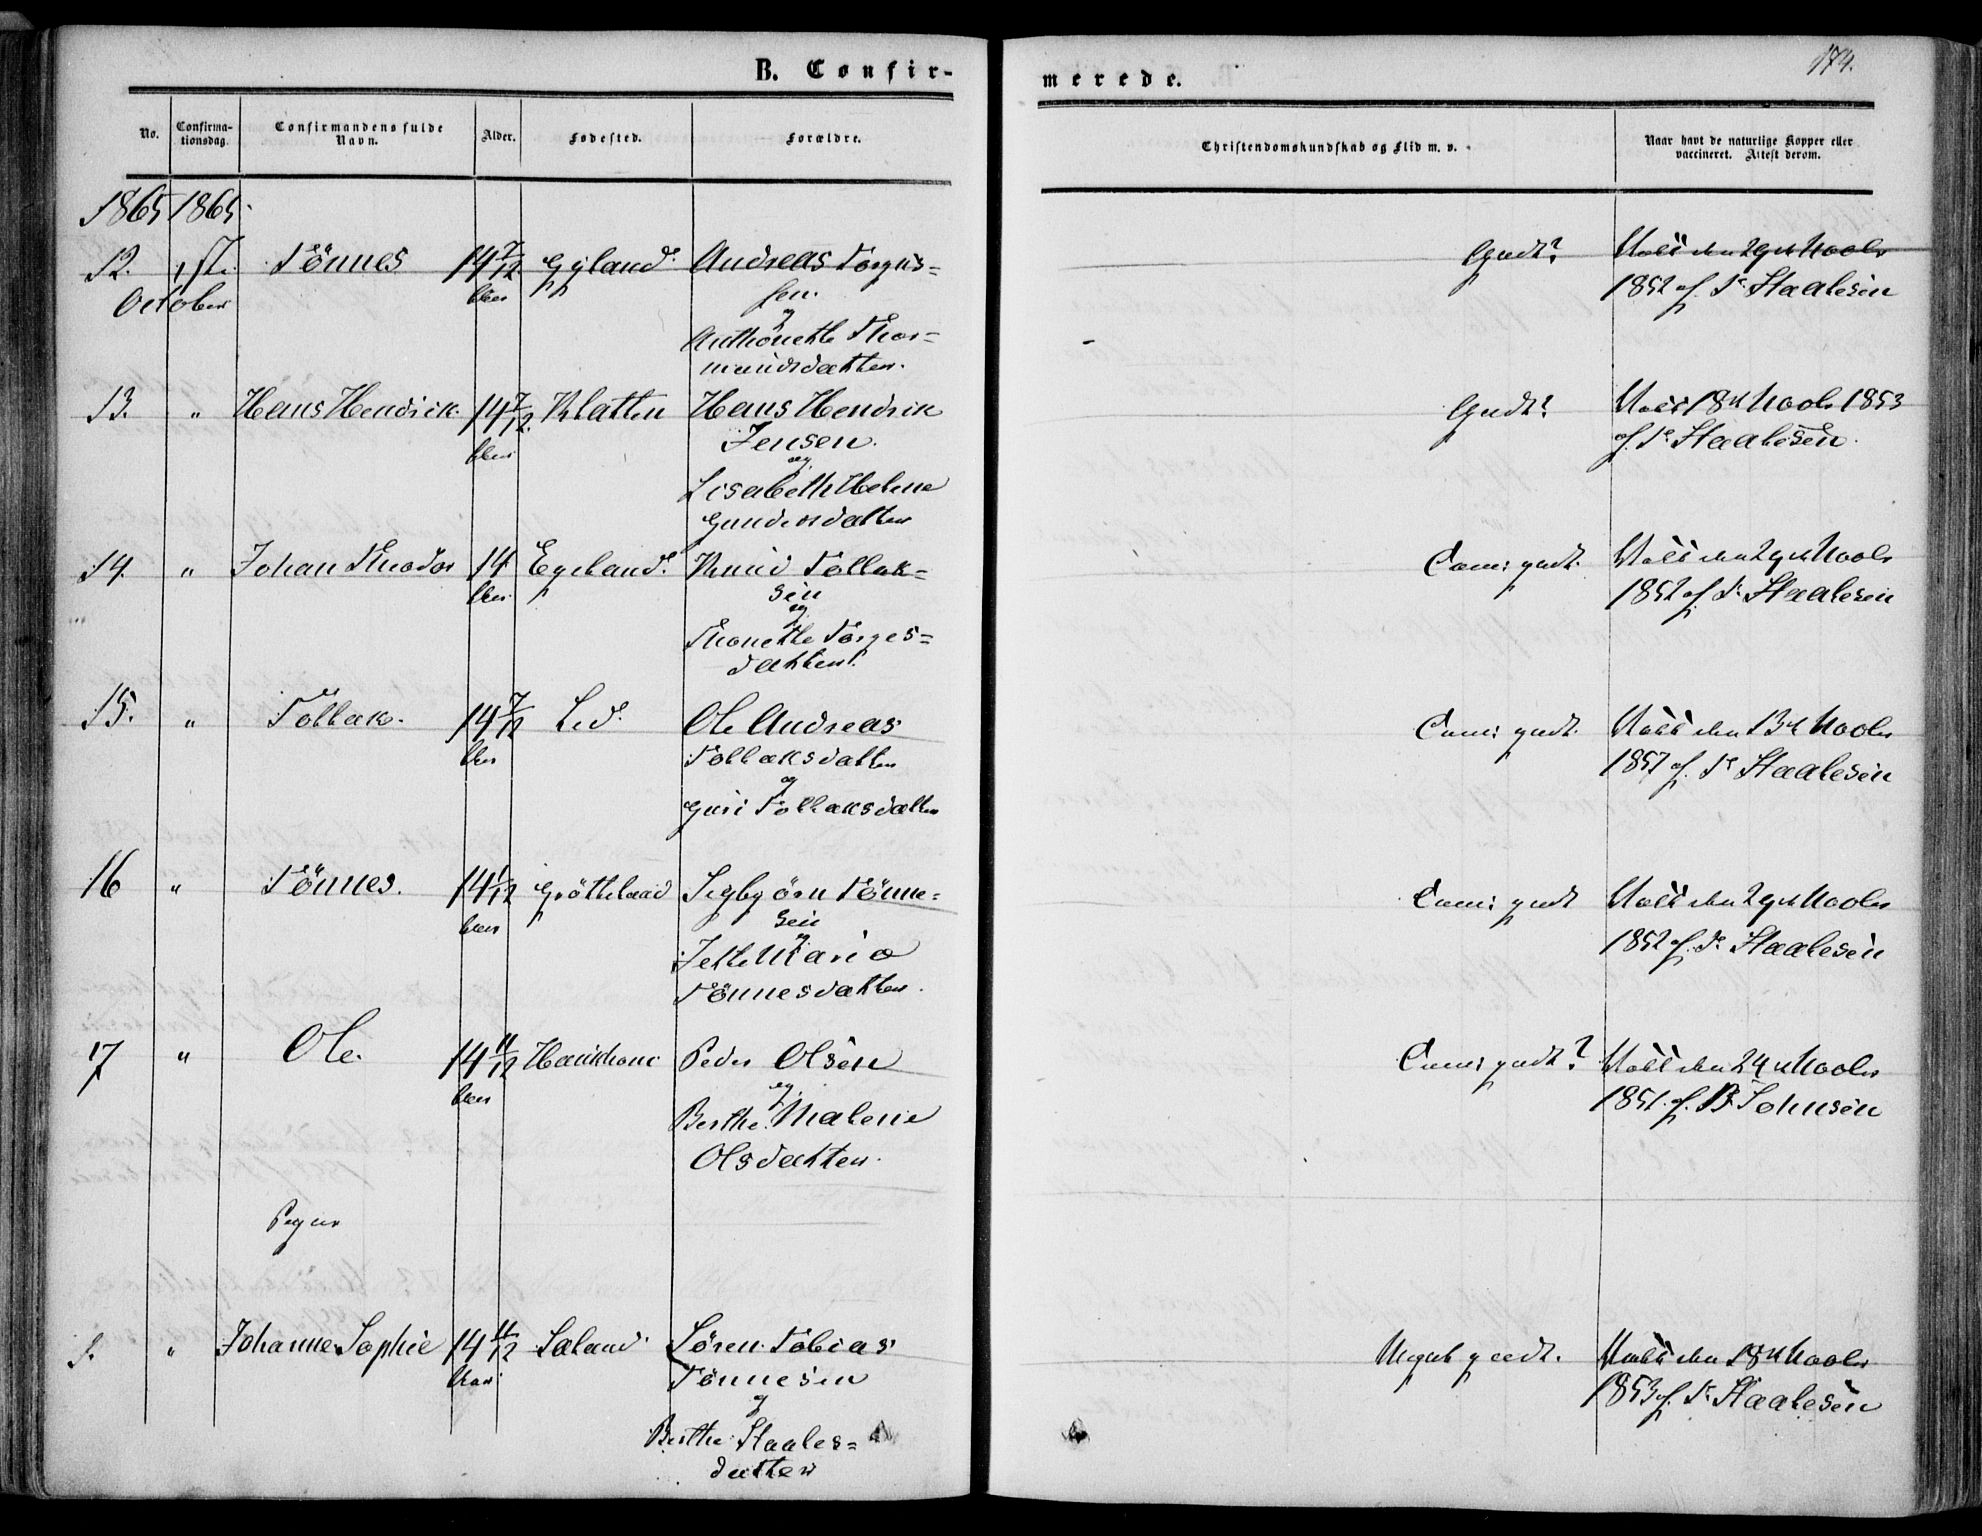 B. Confir-
merede.
174.
No.
Confirma-
tionsdag.
Confirmandens fulde
Navn.
Alder.
Fødested.
Forældre.
Christendomskundskab og Flid m. v.
Naar havt de naturlige Kopper eller
vaccineret. Attest derom.
1865 1865.
12. 1ste Tönnes 14 7/12 Gyland. Andreas Torgus=
October
sen.
og
Anthonette Thor=
mundsdatter.
Godt?
den 29de
1852 af Staalesen
13. " Hans Hendrik. 14 7/12 Klatten Hans Hendrik
Jensen.
og
Lisabeth Helene
Gundersdatter
Godt?
18de 1853
af Staalesen.
14. " Johan Theodor 14 Egeland. Knud Tollak=
sen
og
Thonette Torges=
datter.
godt.
den 29de
1852 af Staalesen
15. " Tollak. 14 7/12 Led. Ole Andreas
Tollaksdatter
og
Guri Tollaksdatter
godt.
den 13de
1851 af Staalesen
16 " Tönnes. 14 1/12 Grötteland Segbjörn Tönne=
sen
og
Jette Maria
Tönnesdatter.
godt
den 29de
1852 af Staalesen
17 " Ole. 14 11/12 Peder Olsen
og
Berthe Malene
Olsdatter.
godt?
den 24de
1851. af B. Johnsen
Piger
1. " Johanne Sophie 14 11/12 Sæland Sören Tobias
Tönnesen
og
Berthe Staales=
datter
Meget godt.
den 18de
1853 af Staalesen